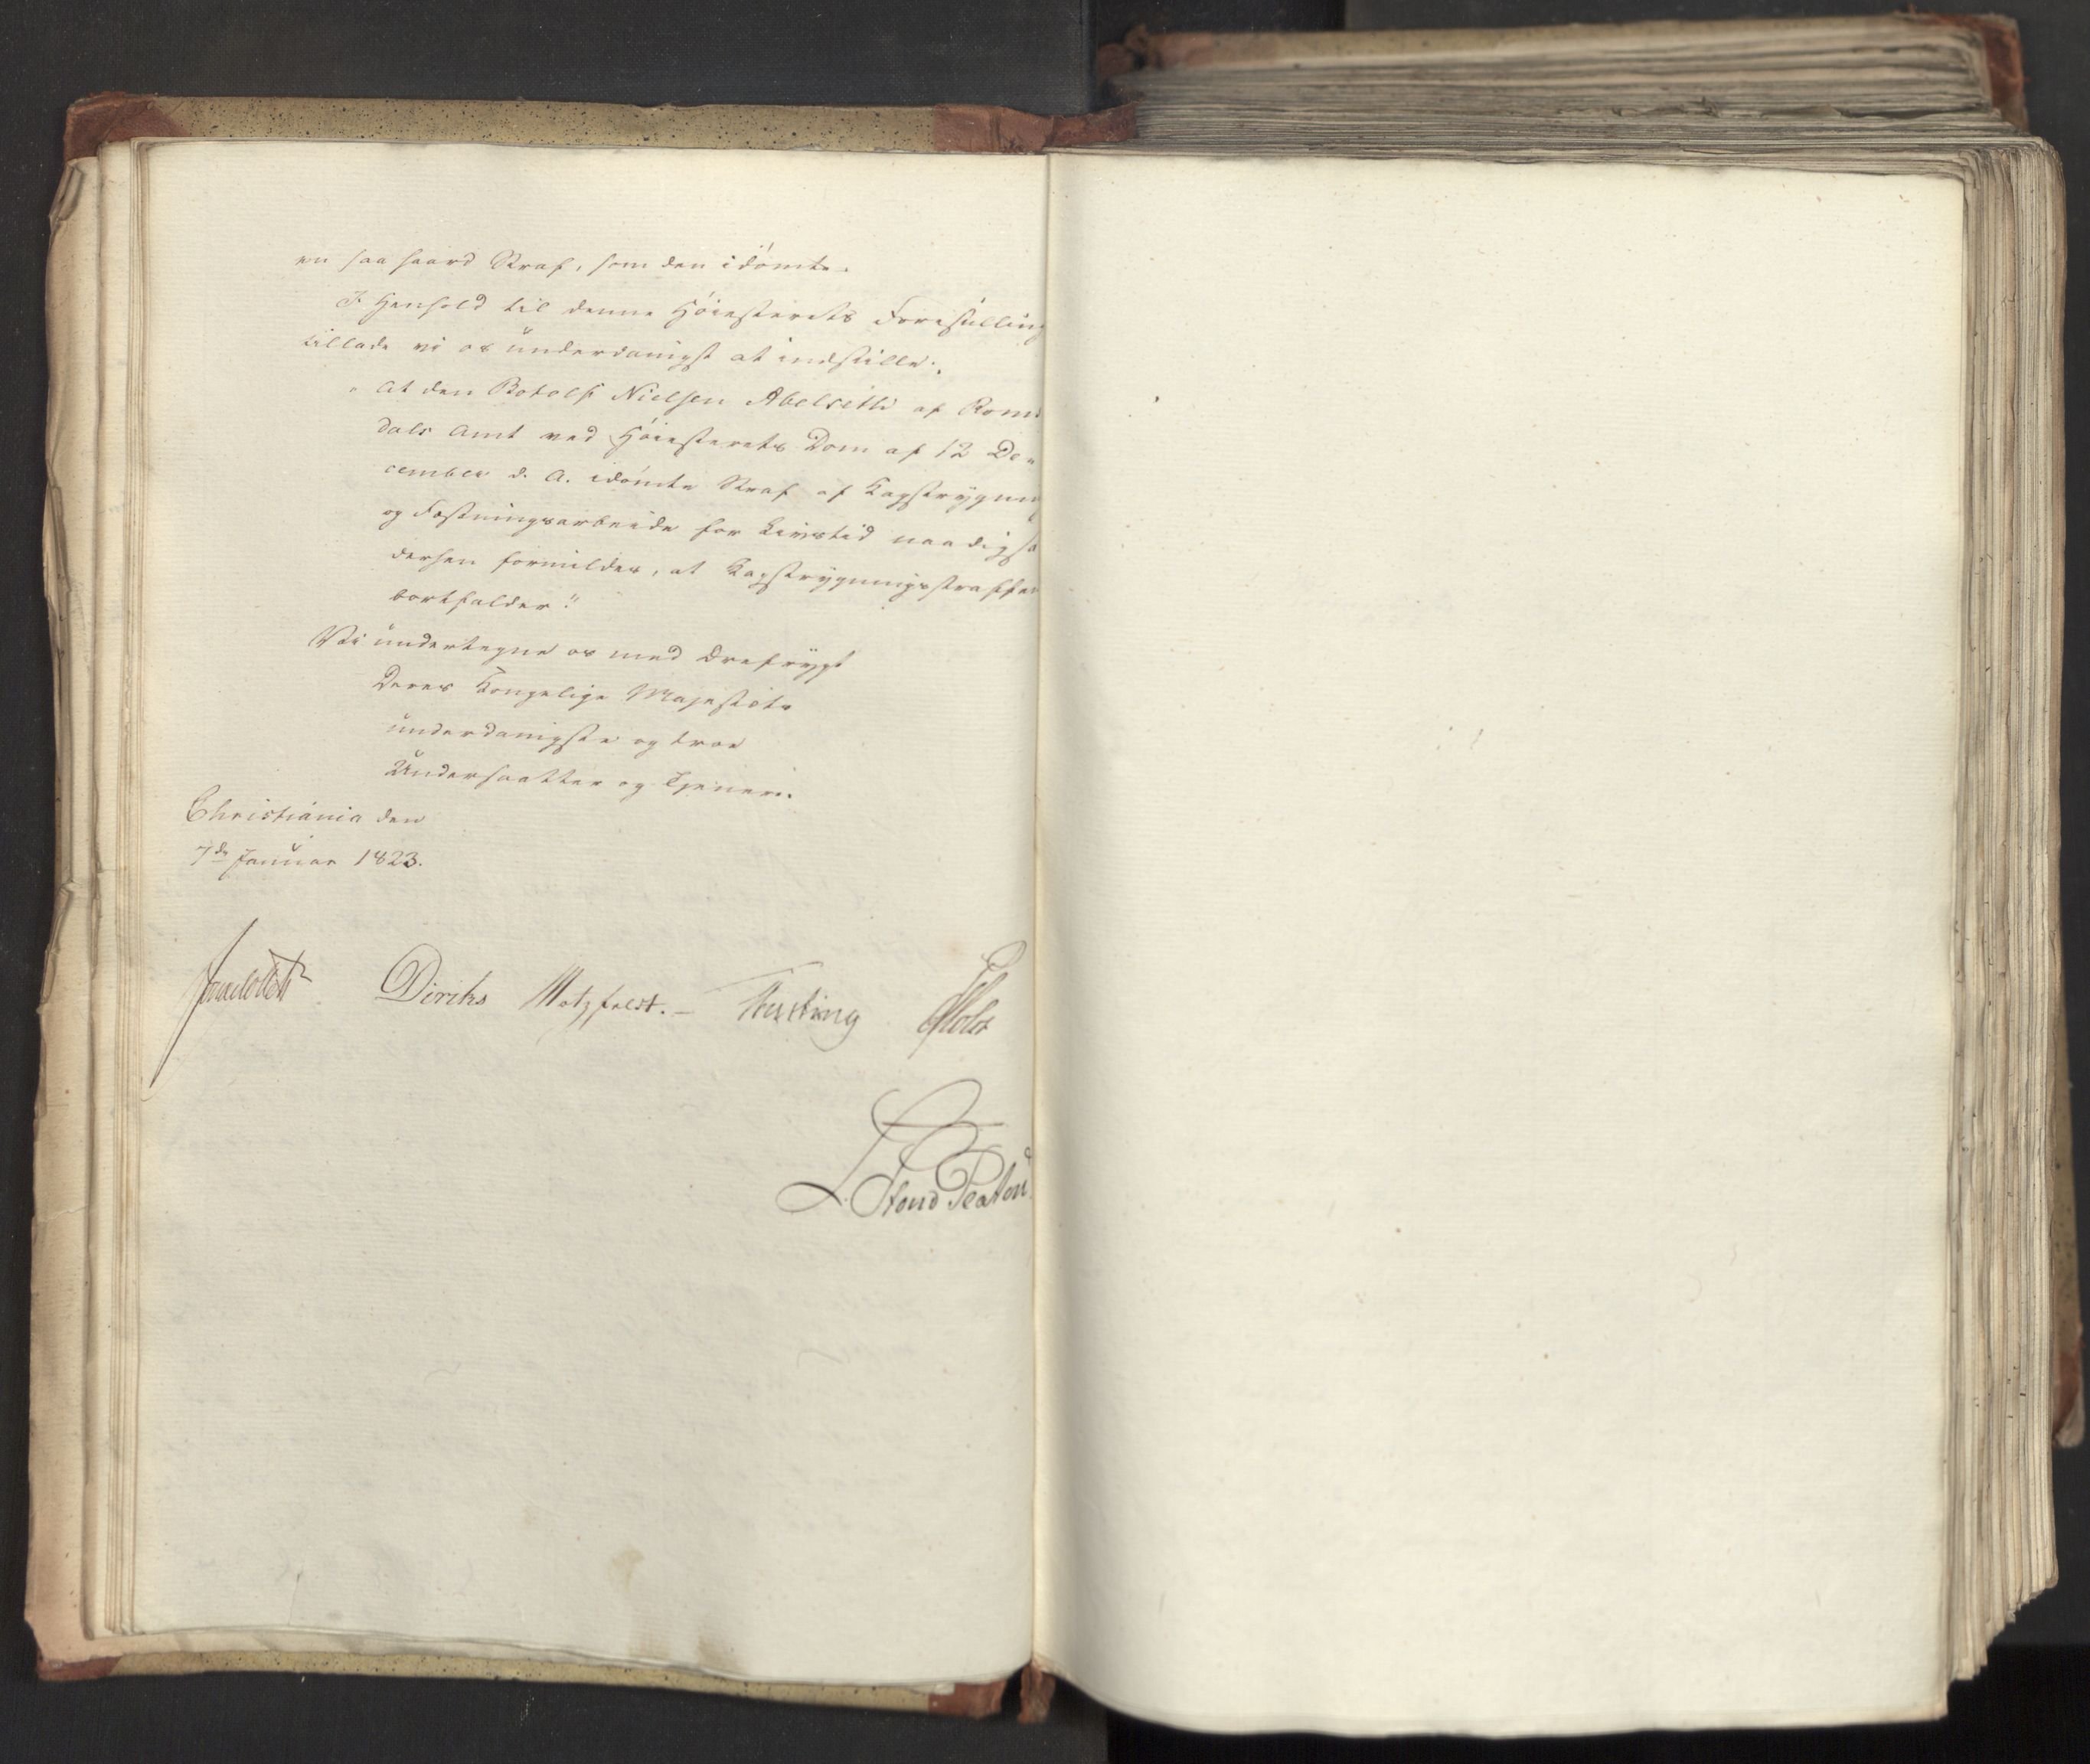 en saa haard Straf, som den idømte.
I Henhold til denne Høiesterets Forestilling
tillade vi os underdanigst at indstille:
"At den Botolf Nielsen Abelseth af Roms
dals Amt ved Høiesterets Dom af 12 De=
cember d. A. idømte Straf af Kagstrygning
og Fæstningsarbeide for Livstid naadigst
derhen formildes, at Kagstrygningsstraffen
bortfalder."
Vi undertegne os med Ærefrygt
Deres Kongelige Majestæts
underdanigste og troe
Undersaatter og Tjenere.
Christiania den
7de Januar 1823.
Diriks Motzfeldt. Holst